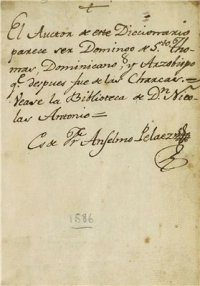 El Auctor de este Diccionario
parece ser Domingo de S.to Tho-
mas, Dominicano, y Arzobispo
q.e despues fue de las Charcas=
Vease la Biblioteca de D.n Nico-
las Antonio=
Es de Fr Anselmo Pelaez
1886